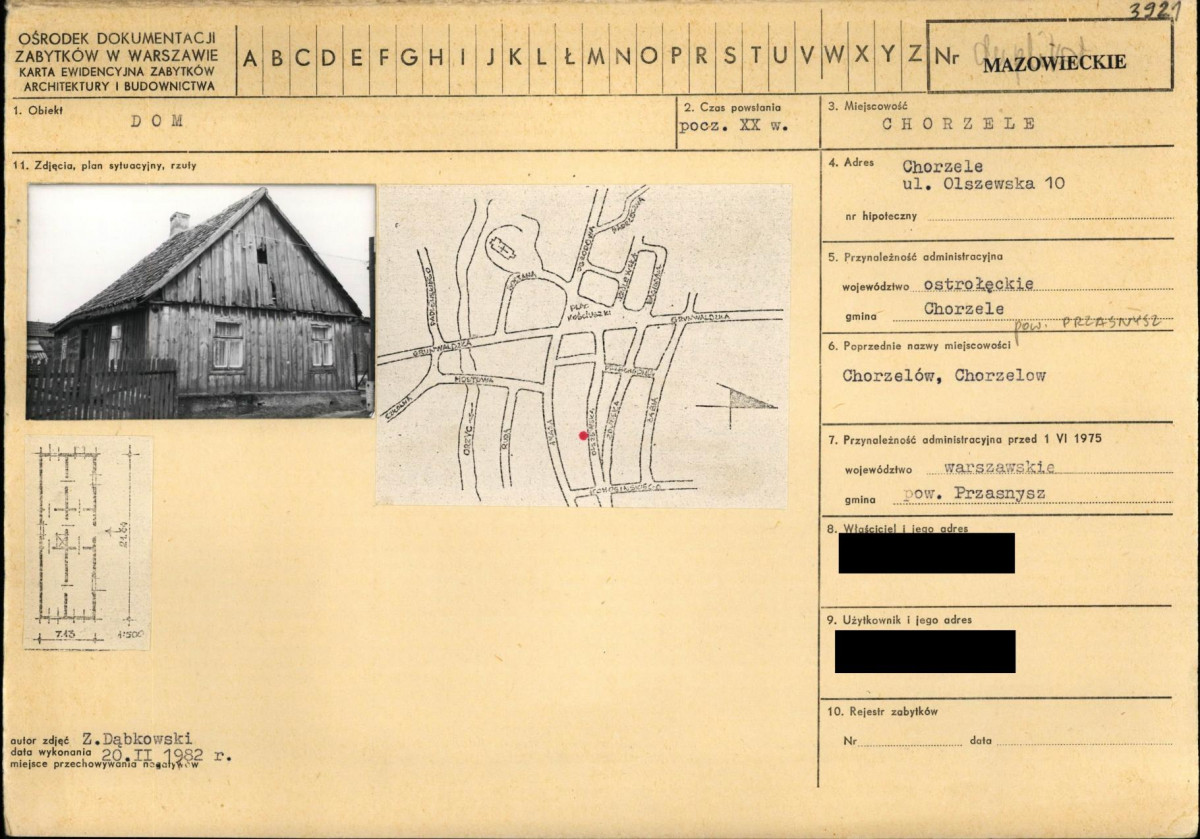 3921
OŚRODEK DOKUMENTACJI
ZABYTKÓW W WARSZAWIE
KARTA EWIDENCYJNA ZABYTKÓW
ARCHITEKTURY I BUDOWNICTWA
A B C D E F G H I J K L Ł M N O P R S T U V W X Y Z
Nr
MAZOWIECKIE
1. Obiekt
DOM
2. Czas powstania
pocz. XX w.
3. Miejscowość
CHORZELE
11. Zdjęcia, plan sytuacyjny, rzuty
4. Adres Chorzele
ul. Olszewska 10
nr hipoteczny
5. Przynależność administracyjna
województwo ostrołęckie
gmina Chorzele
pow. PRZASNYSZ
6. Poprzednie nazwy miejscowości
Chorzelów, Chorzelow
7. Przynależność administracyjna przed 1 VI 1975
województwo warszawskie
gmina pow. Przasnysz
8. Właściciel i jego adres
9. Użytkownik i jego adres
10. Rejestr zabytków
Nr data
OGRODOWA
Plac
Kościuszki
GRUNWALDZKA
GRUNWALDZKA
MOSTOWA
SZKOLNA
ORZYC
21.84
7.13
1:500
autor zdjęć Z.Dąbkowski
data wykonania 20.II 1982 r.
miejsce przechowywania negatywów